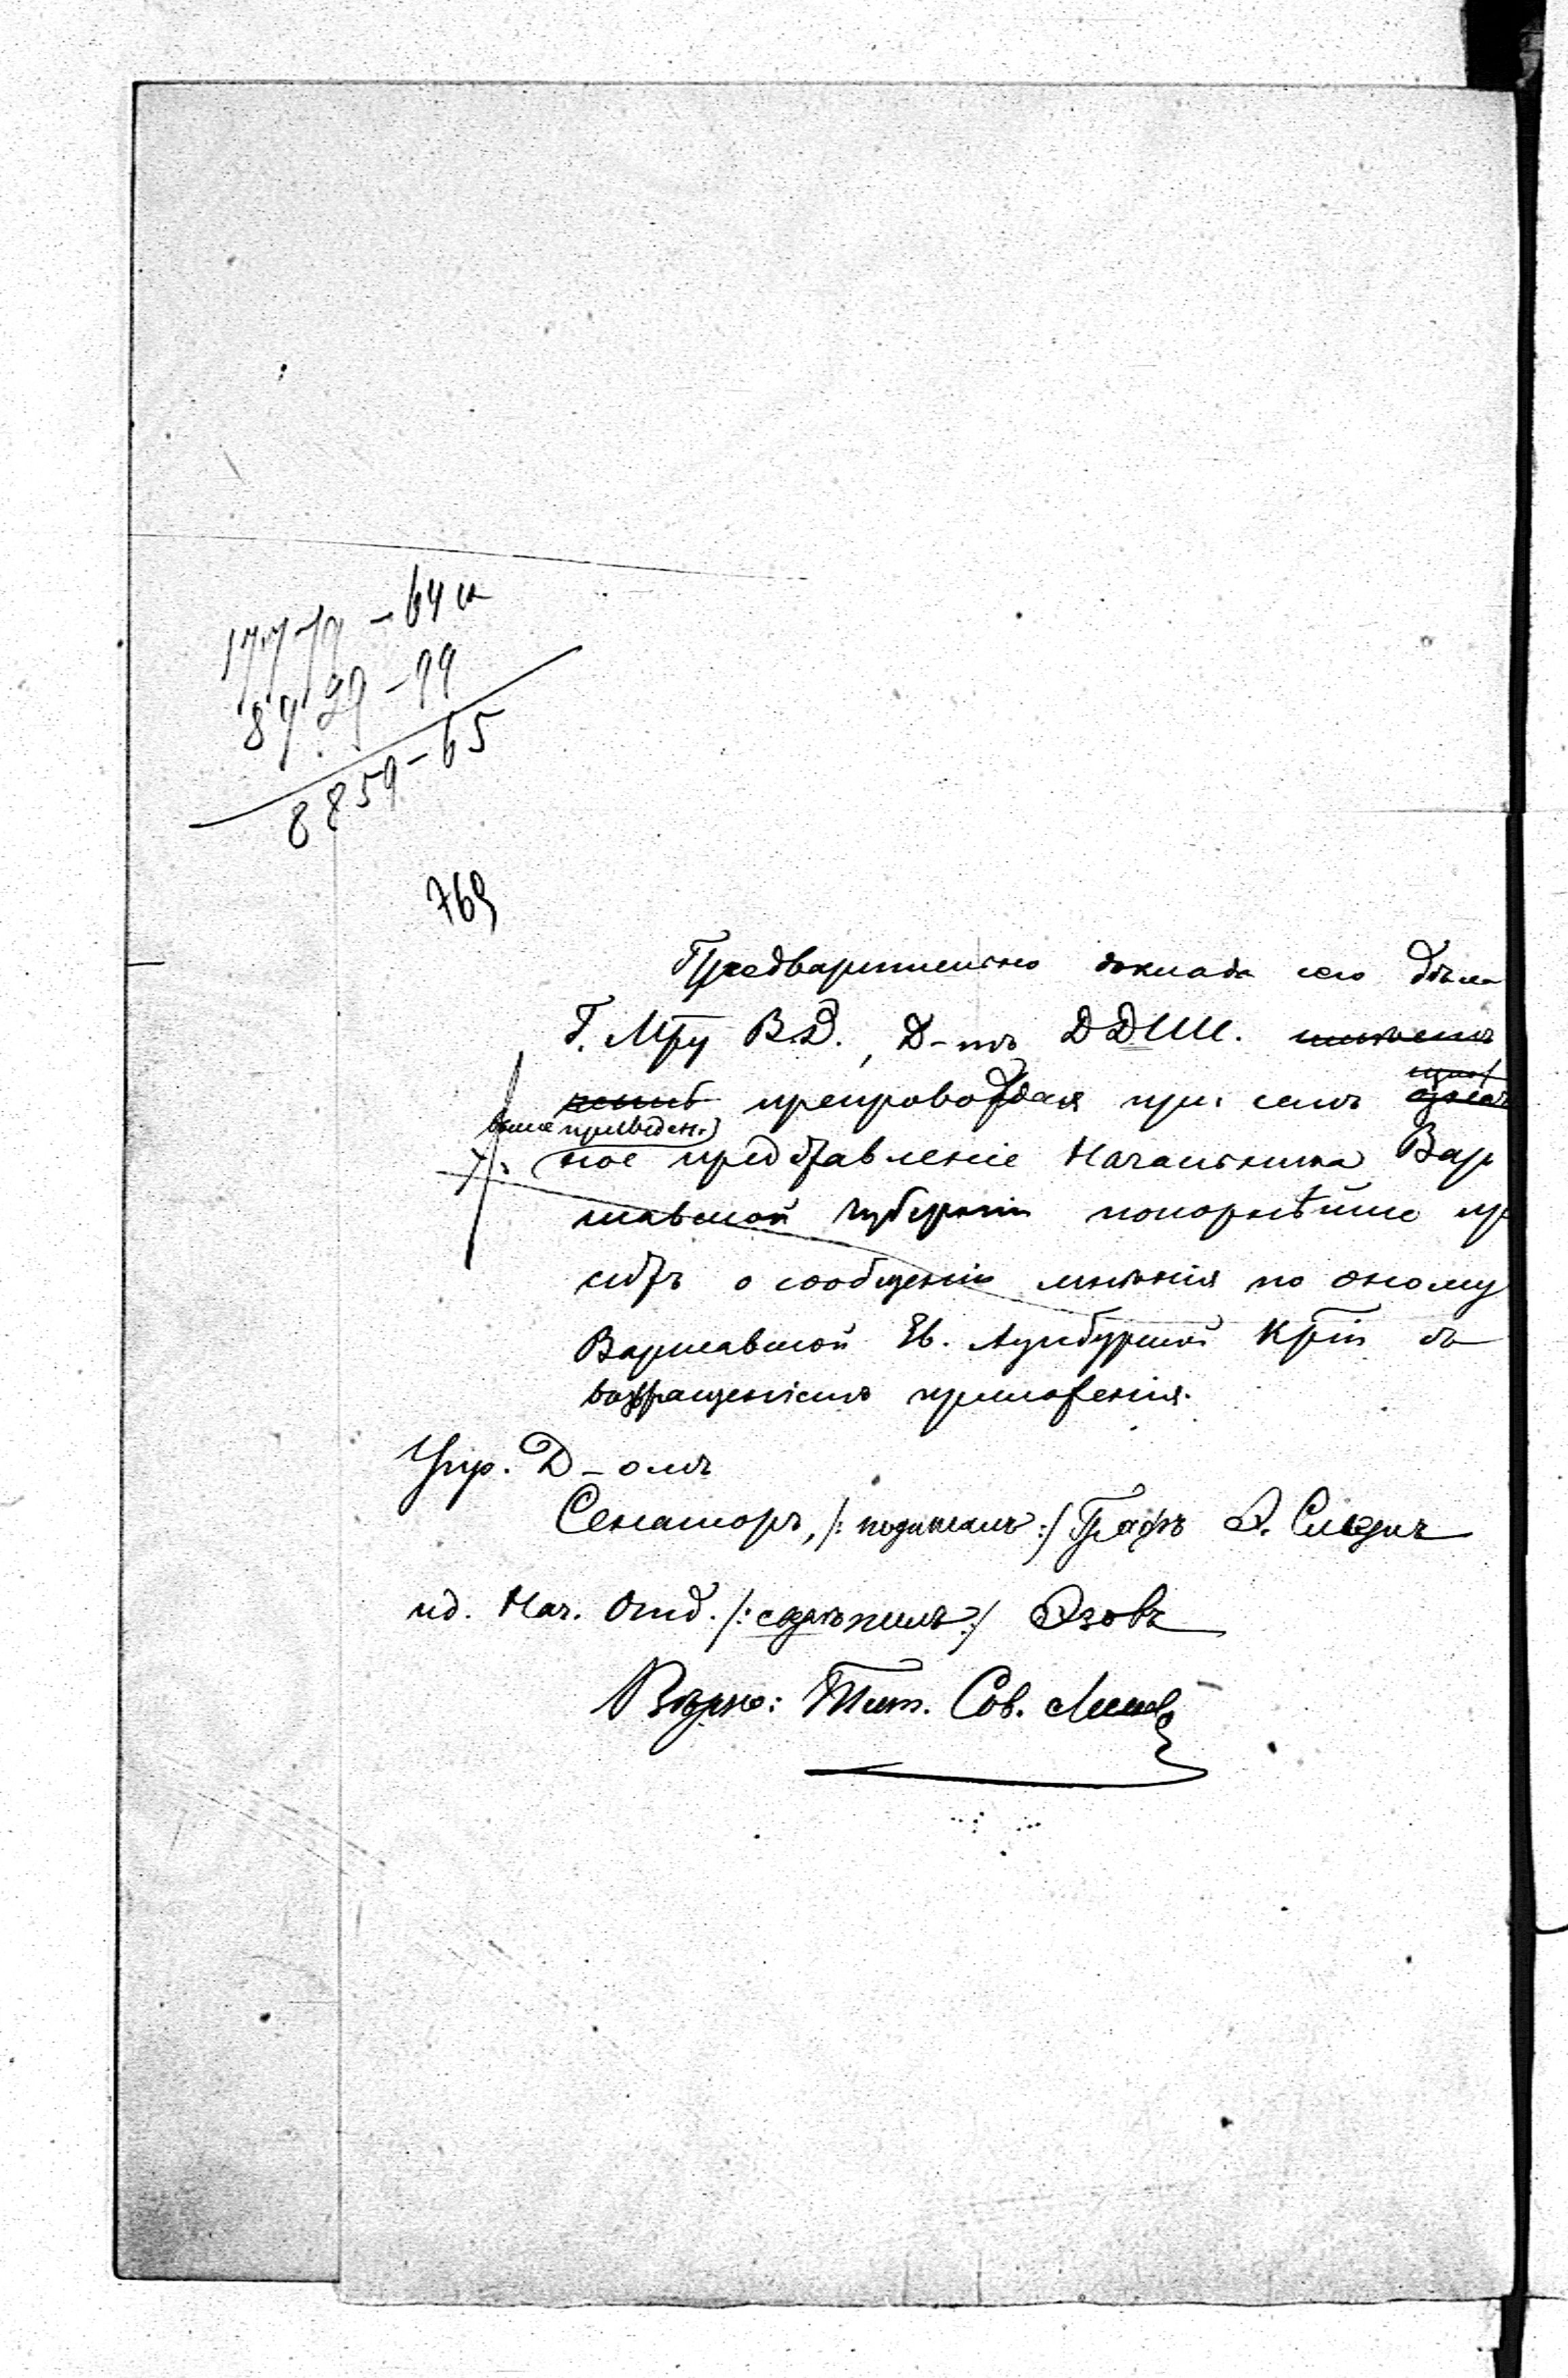 17719 - 64 к
8929 - 99
8859 - 65
769
Предварительно доклада сего дѣла
Г. Мру В.Д., Д-тъ ДДИИ.
препровождая при семъ
выше приведен.
ное представленіе Начальника Вар
шавской губерніи покорнѣйше пр
ситъ о сообщеніи мнѣнія по оному
Варшавской Ев. Аугсбургской Крiи съ
возвращеніемъ приложенія.
Упр. Д-омъ
Сенаторъ, /: подписалъ :/ Графъ Э. Сиверсъ
ид. Нач. Отд. /: скрѣпилъ :/ Эзовъ
Вѣрно: Тит. Сов.